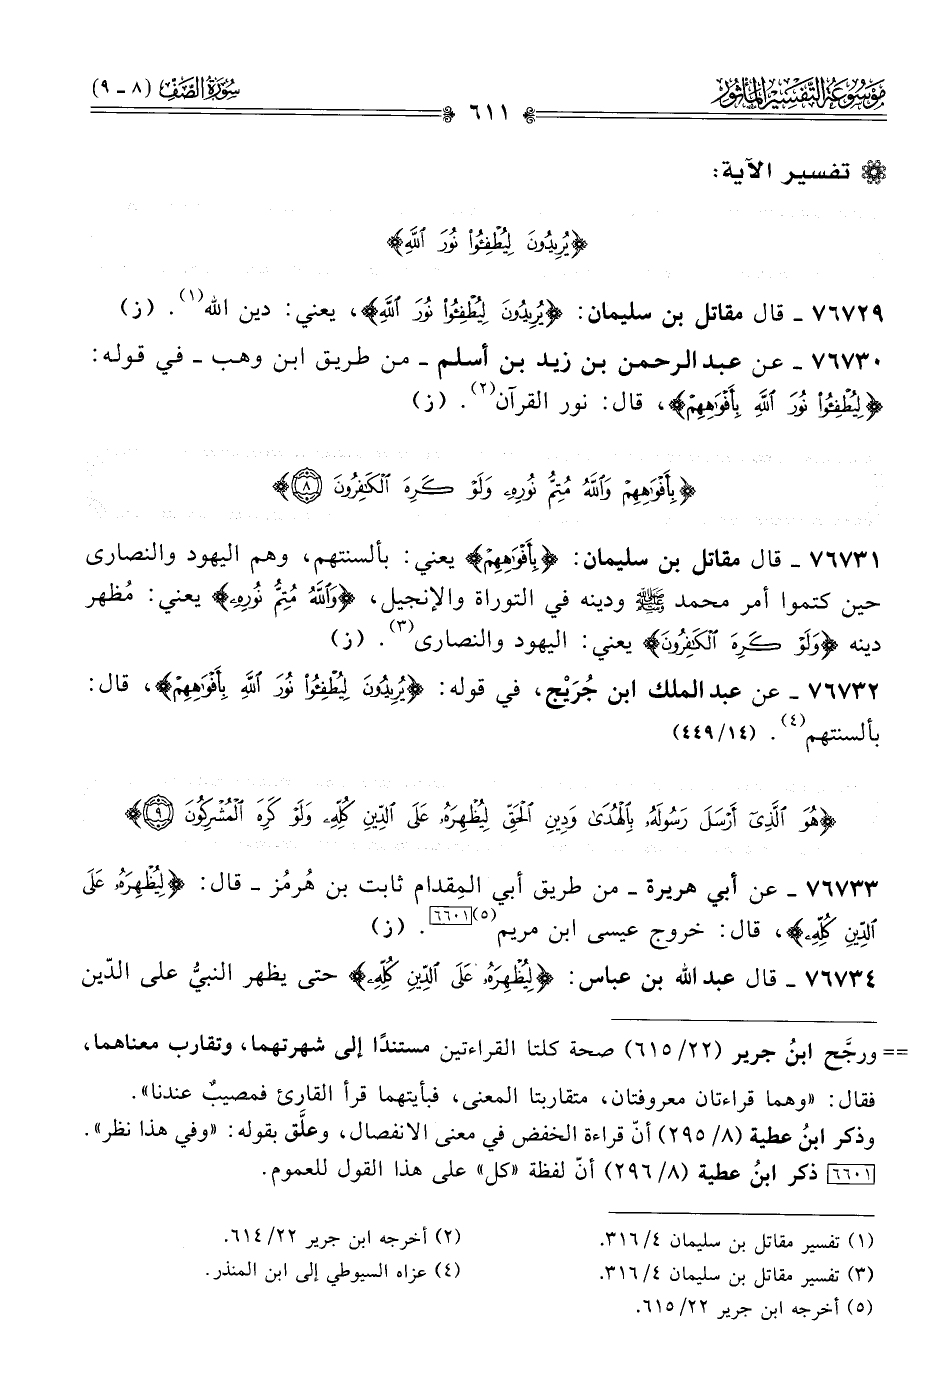 مَوْسُوعَةُ التَّفْسِيرِ المَأْثُورِ
٦١١
سُورَةُ الصَّفِّ (٨ - ٩)
تفسير الآية:
﴿يُرِيدُونَ لِيُطْفِـُٔوا۟ نُورَ ٱللَّهِ﴾
٧٦٧٢٩ - قال مقاتل بن سليمان: ﴿يُرِيدُونَ لِيُطْفِـُٔوا۟ نُورَ ٱللَّهِ﴾، يعني: دين الله(١). (ز)
٧٦٧٣٠ - عن عبد الرحمن بن زيد بن أسلم - من طريق ابن وهب - في قوله:
﴿لِيُطْفِـُٔوا۟ نُورَ ٱللَّهِ بِأَفْوَٰهِهِمْ﴾، قال: نور القرآن(٢). (ز)
﴿بِأَفْوَٰهِهِمْ وَٱللَّهُ مُتِمُّ نُورِهِۦ وَلَوْ كَرِهَ ٱلْكَٰفِرُونَ ٨﴾
٧٦٧٣١ - قال مقاتل بن سليمان: ﴿بِأَفْوَٰهِهِمْ﴾ يعني: بألسنتهم، وهم اليهود والنصارى
حين كتموا أمر محمد ﷺ ودينه في التوراة والإنجيل، ﴿وَٱللَّهُ مُتِمُّ نُورِهِۦ﴾ يعني: مُظهر
دينه ﴿وَلَوْ كَرِهَ ٱلْكَٰفِرُونَ﴾ يعني: اليهود والنصارى(٣). (ز)
٧٦٧٣٢ - عن عبد الملك ابن جُرَيْج، في قوله: ﴿يُرِيدُونَ لِيُطْفِـُٔوا۟ نُورَ ٱللَّهِ بِأَفْوَٰهِهِمْ﴾، قال:
بألسنتهم(٤). (١٤/٤٤٩)
﴿هُوَ ٱلَّذِىٓ أَرْسَلَ رَسُولَهُۥ بِٱلْهُدَىٰ وَدِينِ ٱلْحَقِّ لِيُظْهِرَهُۥ عَلَى ٱلدِّينِ كُلِّهِۦ وَلَوْ كَرِهَ ٱلْمُشْرِكُونَ ٩﴾
٧٦٧٣٣ - عن أبي هريرة - من طريق أبي المِقدام ثابت بن هُرمُز - قال: ﴿لِيُظْهِرَهُۥ عَلَى
ٱلدِّينِ كُلِّهِۦ﴾، قال: خروج عيسى ابن مريم(٥)[٦٦٠١]. (ز)
٧٦٧٣٤ - قال عبد الله بن عباس: ﴿لِيُظْهِرَهُۥ عَلَى ٱلدِّينِ كُلِّهِۦ﴾ حتى يظهر النبيُّ على الدّين
== ورجَّح ابنُ جرير (٢٢/٦١٥) صحة كلتا القراءتين مستندًا إلى شهرتهما، وتقارب معناهما،
فقال: «وهما قراءتان معروفتان، متقاربتا المعنى، فبأيتهما قرأ القارئ فمصيبٌ عندنا».
وذكر ابنُ عطية (٨/٢٩٥) أنّ قراءة الخفض في معنى الانفصال، وعلَّق بقوله: «وفي هذا نظر».
[٦٦٠١] ذكر ابنُ عطية (٨/٢٩٦) أنّ لفظة «كل» على هذا القول للعموم.
(١) تفسير مقاتل بن سليمان ٤/٣١٦.
(٢) أخرجه ابن جرير ٢٢/٦١٤.
(٣) تفسير مقاتل بن سليمان ٤/٣١٦.
(٤) عزاه السيوطي إلى ابن المنذر.
(٥) أخرجه ابن جرير ٢٢/٦١٥.